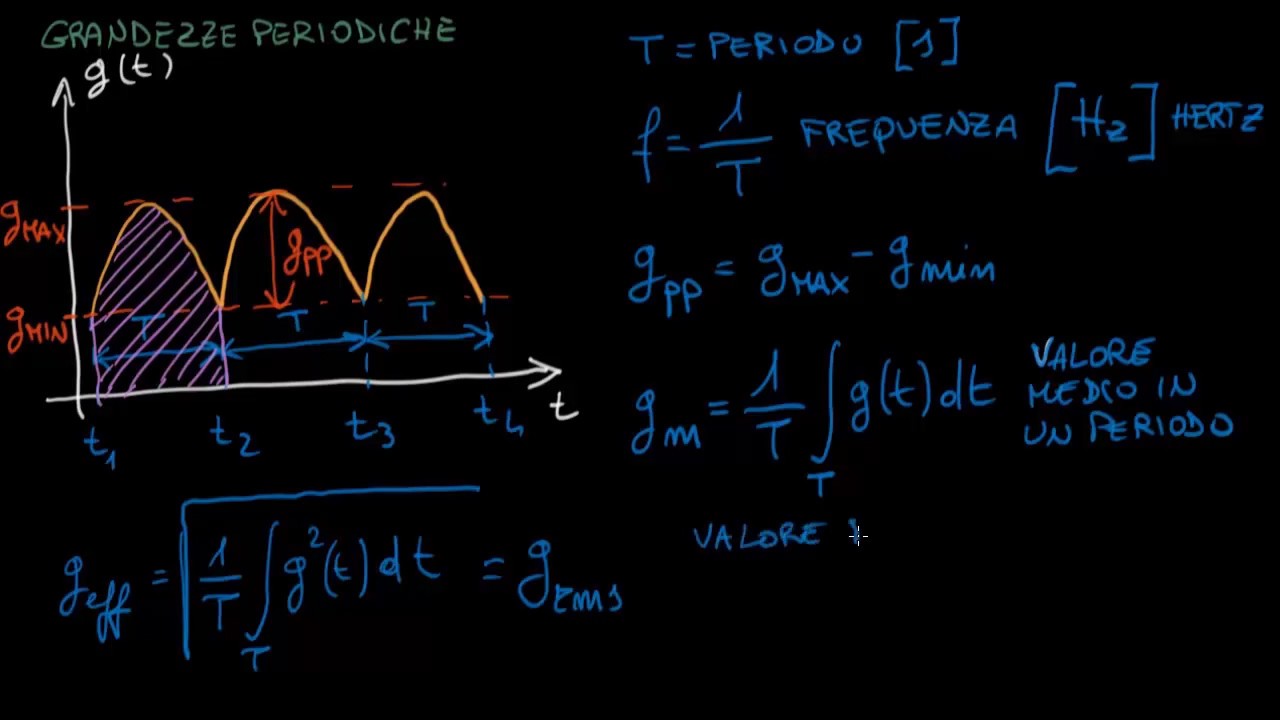 GRANDEZZE PERIODICHE
g(t)
gMAX
gMIN
gPP
T T T
t
t1 t2 t3 t4
T = PERIODO [s]
f = 1/T FREQUENZA [Hz] HERTZ
gPP = gMAX - gmin
gm = 1/T ∫T g(t) dt VALORE
MEDIO IN
UN PERIODO
geff = √(1/T ∫T g²(t) dt) = grms
VALORE